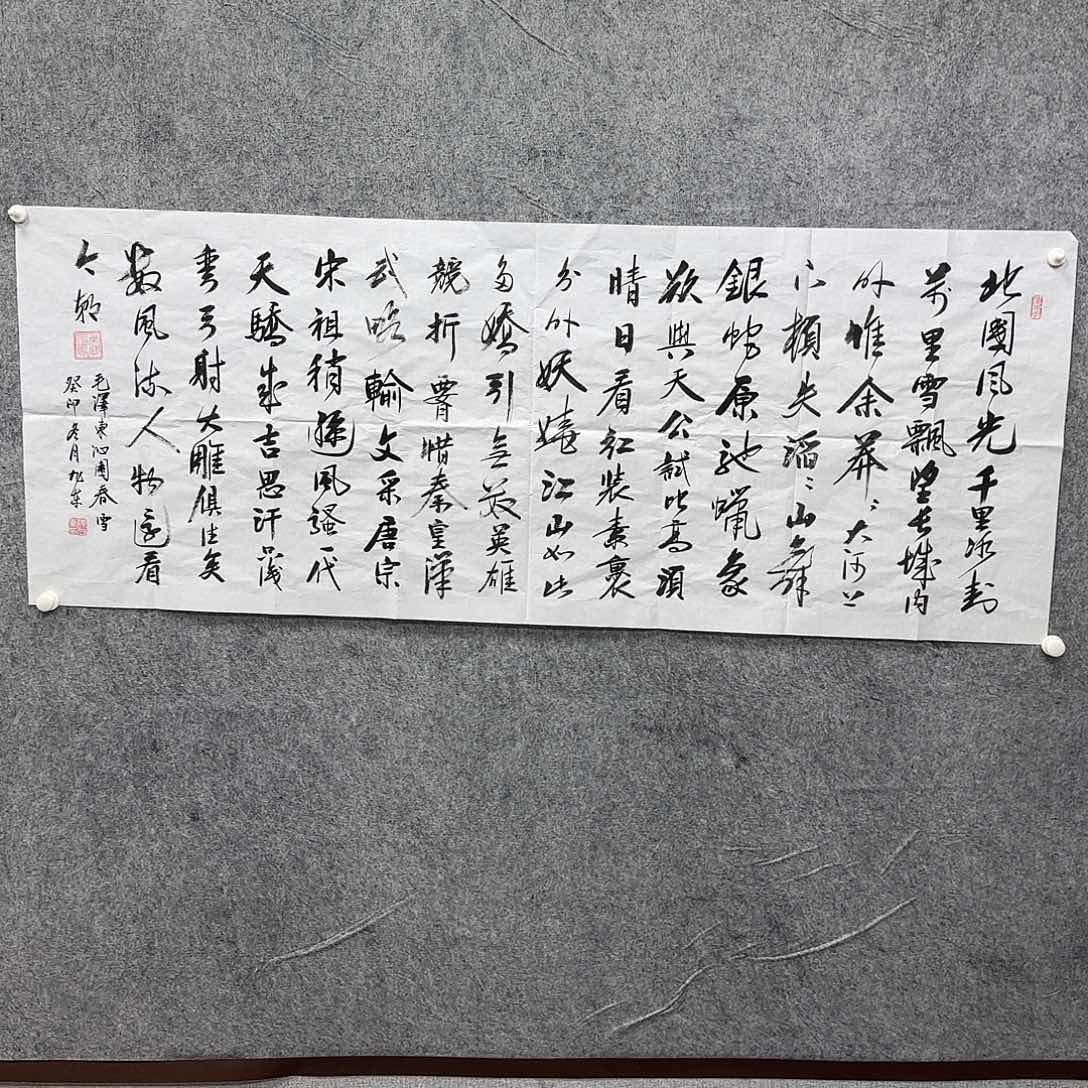 北國风光千里冰封
萬里雪飄望長城内
外惟余莽〻大河上
下頓失滔〻山舞
銀蛇原馳蠟象
欲與天公試比高須
晴日看红装素裹
分外妖娆江山如此
多嬌引无數英雄
競折腰惜秦皇漢
武略輸文采唐宗
宋祖稍遜风騷一代
天驕成吉思汗只識
弯弓射大雕俱往矣
數風流人物還看
今朝
毛澤東沁園春雪
癸卯冬月